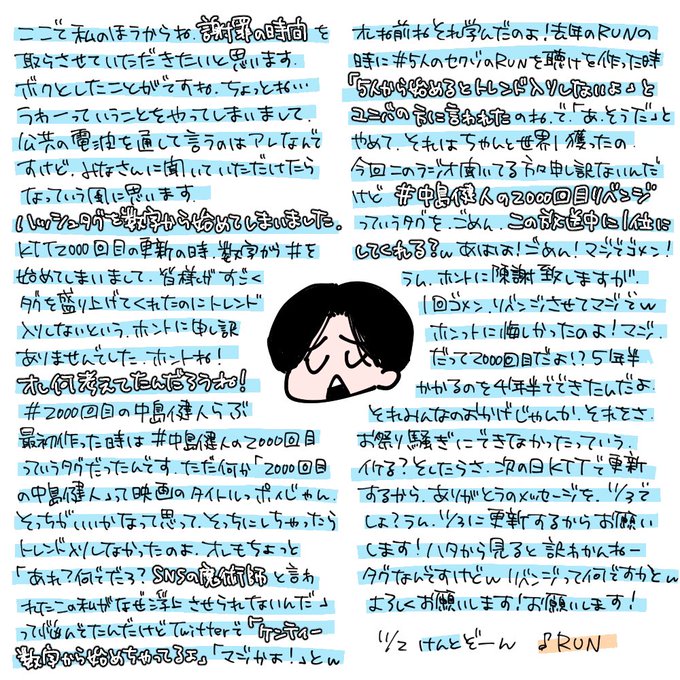 ここで私のほうからね．謝罪の時間を
取らさせていただきたいと思います．
ボクとしたことがですね．ちょっとね…
うわーっていうことをやってしまいまして．
公共の電波を通して言うのはアレなんで
すけど．みなさんに聞いていただけたら
なっていう風に思います．
ハッシュタグを数字から始めてしまいました。
KTT2000回目の更新の時．数字から#を
始めてしまいまして．皆様がすごく
タグを盛り上げてくれたのにトレンド
入りしないという．ホントに申し訳
ありませんでした．ホントね！
オレ何考えてたんだろうね！
#2000回目の中島健人らぶ
最初作った時は#中島健人の2000回目
っていうタグだったんです．ただ何か「2000回目
の中島健人」って映画のタイトルっポイじゃん．
そっちがいいかなって思って．そっちにしちゃったら
トレンド入りしなかったのよ．オレもちょっと
「あれ？何でだろ？SNSの魔術師と言わ
れたこの私がなぜ浮上させられないんだ」
って悩んでたんだけどTwitterで「ケンティー
数字から始めちゃってるよ」「マジかよ！」とw
オレね前ねそれ学んだのよ！去年のRUNの
時に#5人のセクゾのRUNを聴けを作った時
「5人から始めるとトレンド入りしないよ」と
ユニバの方に言われたのね．で「あ．そうだ」と
やめて．それはちゃんと世界1獲ったの．
今回このラジオ聞いてる方々申し訳ないんだ
けど #中島健人の2000回目リベンジ
っていうタグを．ごめん．この放送中に1位に
してくれる？w あはは！ごめん！マジでゴメン！
うん．ホントに陳謝致しますが．
1回ゴメン．リベンジさせてマジでw
ホンットに悔しかったのよ！マジ．
だって2000回目だよ！？5年半
かかるのを4年半でできたんだよ．
それみんなのおかげじゃんか！それをさ．
お祭り騒ぎにできなかったっていう．
イケる？そしたらさ．次の日KTTで更新
するから．ありがとうのメッセージを．11/3で
しょ？うん．11/3に更新するからお願い
します！ハタから見ると訳わかんねー
タグなんですけどw リベンジって何ですかとw
よろしくお願いします！お願いします！
11/2 けんとぞーん ♪RUN